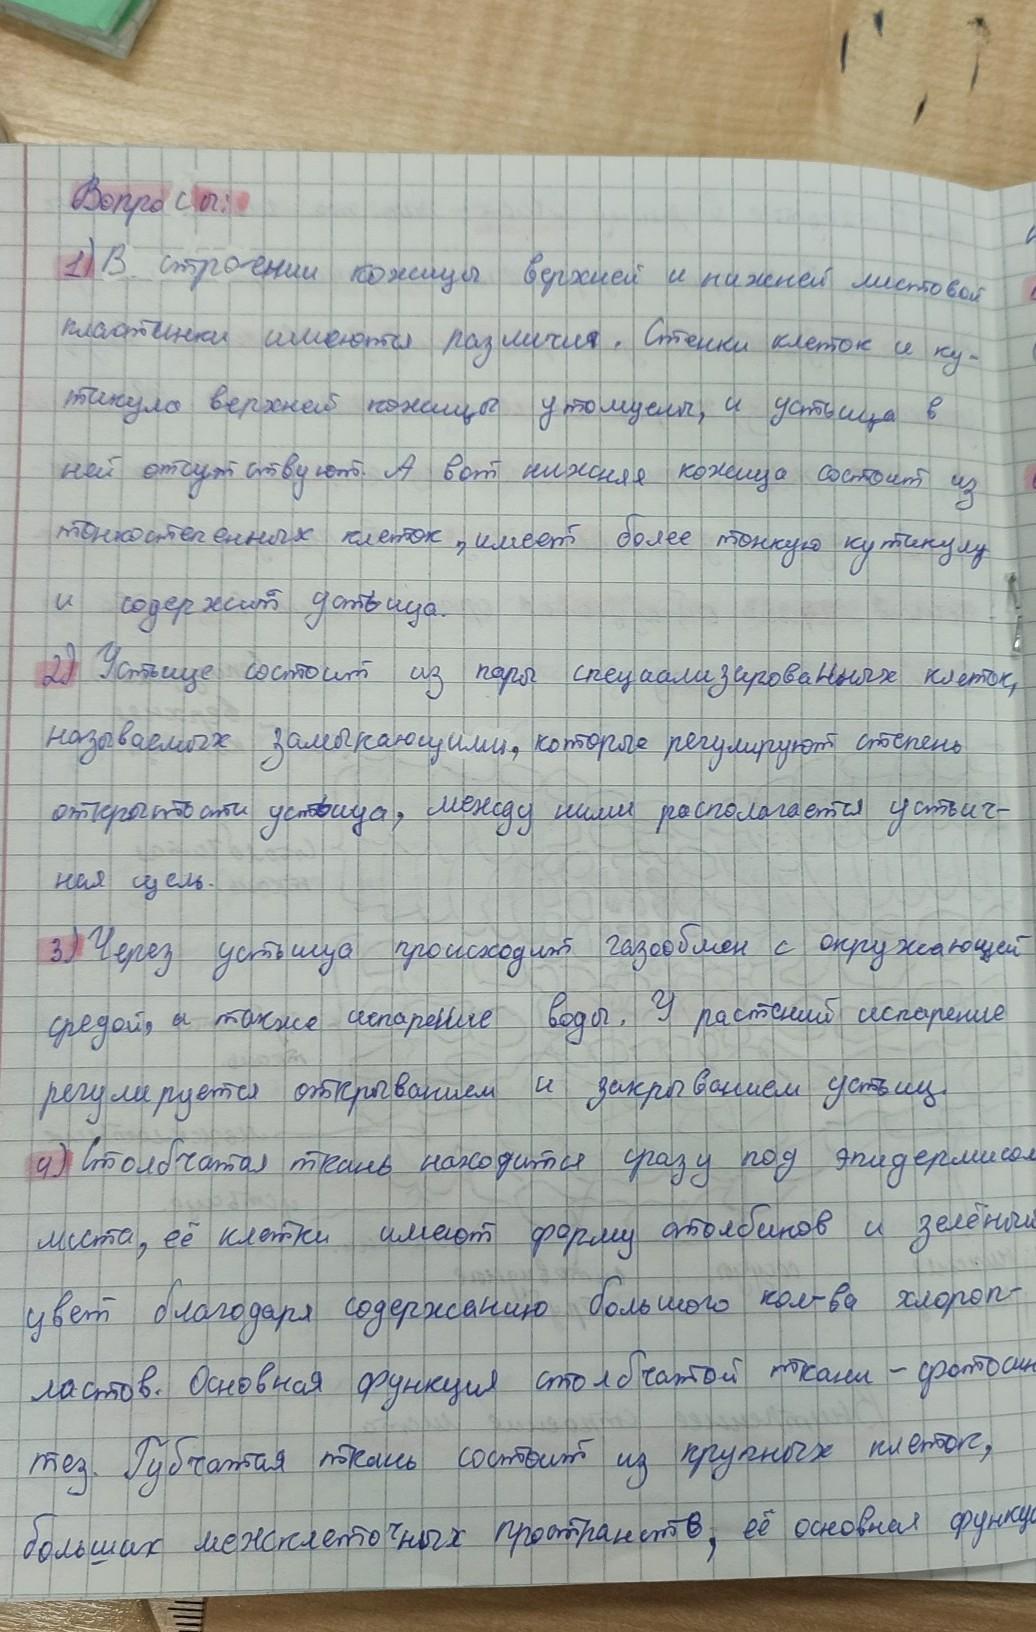 Вопросы:
1) В строении кожицы верхней и нижней листовой
пластинки имеются различия. Стенки клеток и ку-
тикула верхней кожицы утолщены, и устьица в
ней отсутствуют. А вот нижняя кожица состоит из
тонкостенных клеток, имеет более тонкую кутикулу
и содержит устьица.
2) Устьице состоит из пары специализированных клеток,
называемых замыкающими, которые регулируют степень
открытости устьица, между ними располагается устьич-
ная щель.
3) Через устьица происходит газообмен с окружающей
средой, а также испарение воды. У растений испарение
регулируется открыванием и закрыванием устьиц.
4) Столбчатая ткань находится сразу под эпидермисом
листа, её клетки имеют форму столбиков и зелёный
цвет благодаря содержанию большого кол-ва хлороп-
ластов. Основная функция столбчатой ткани - фотосин
тез. Губчатая ткань состоит из крупных клеток,
больших межклеточных пространств, её основная функци